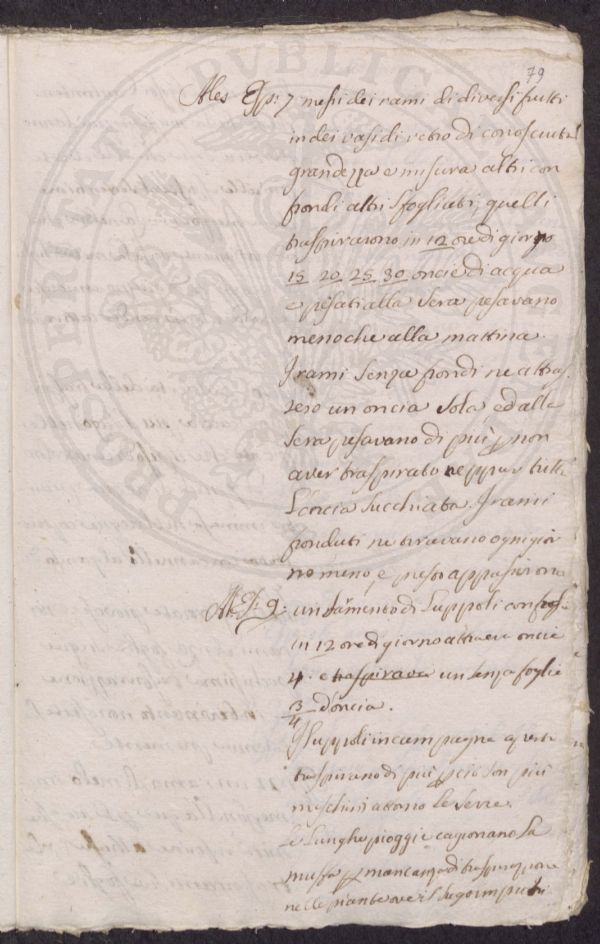 79
Ales Esp: 7 messi dei rami di diversi frutti
in dei vasi di vetro di conosciuta
grandezza e misura altri con
frondi altri sfogliati, quelli
traspirarono in 12 ore di giorno
15 20 25 30 oncie di acqua
e pesati alla sera pesavano
meno che alla mattina.
I rami senza frondi ne attra
sero un oncia sola ed alla
sera pesavano di più p non
aver traspirato neppur tutta
l'oncia succhiata. I rami
fronduti ne tiravano ogni gior
no meno, e presto appassirono
9: un ramento di Luppoli con fogl
in 12 ore di giorno attraeva oncie
4. e traspirava un senza foglie
3/4 d'oncia.
I Luppoli in campagna aperta
traspirano di più p ciò son più
meschini attorno le serre.
Le lunghe pioggie cagionano la
muffa p mancanza di traspirazione
nelle piante ove il sugo imputri
PROSPERITATI PUBLICAE